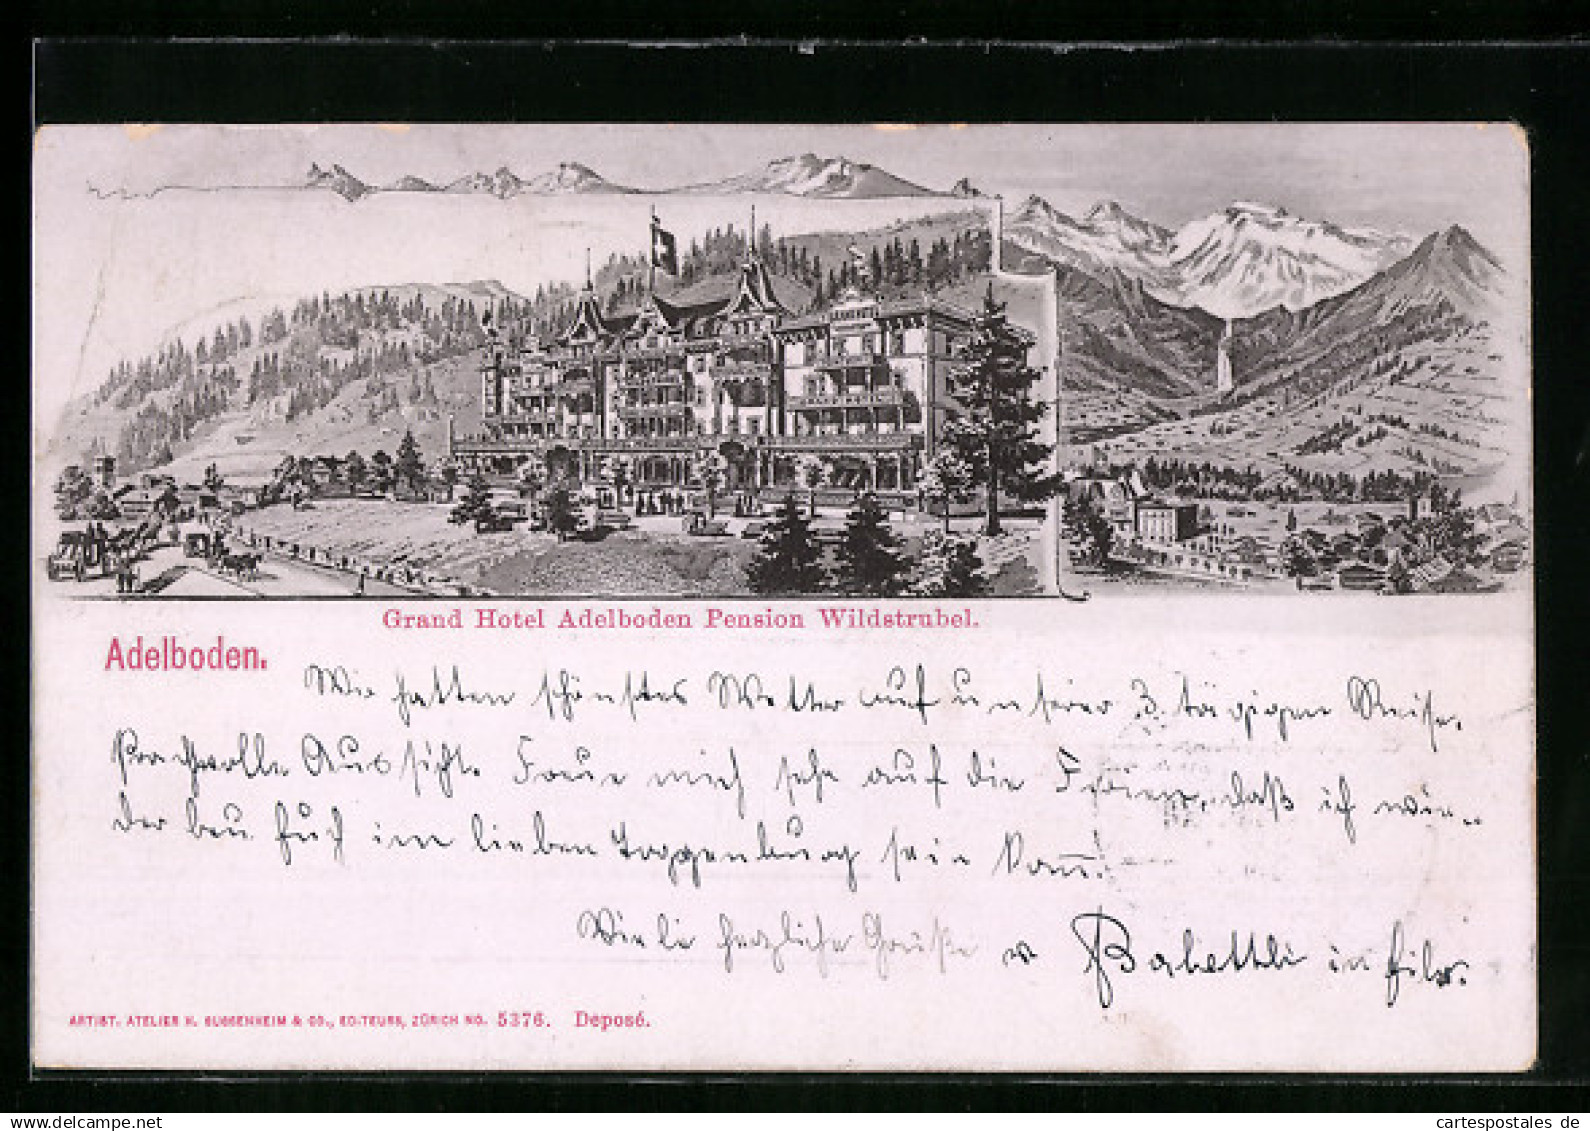 Grand Hotel Adelboden Pension Wildstrubel.
Adelboden.
Wir hatten schönstes Wetter auf unserer 3. tägigen Reise.
Prachtvolle Aussicht. Freue mich sehr auf die Ferien, daß ich wie-
der bei Euch im lieben Toggenburg sein kann.
Viele herzliche Grüße v Babettli in
ARTIST. ATELIER H. GUGGENHEIM & CO., EDITEURS, ZÜRICH NO. 5376. Deposé.
cartespostales de